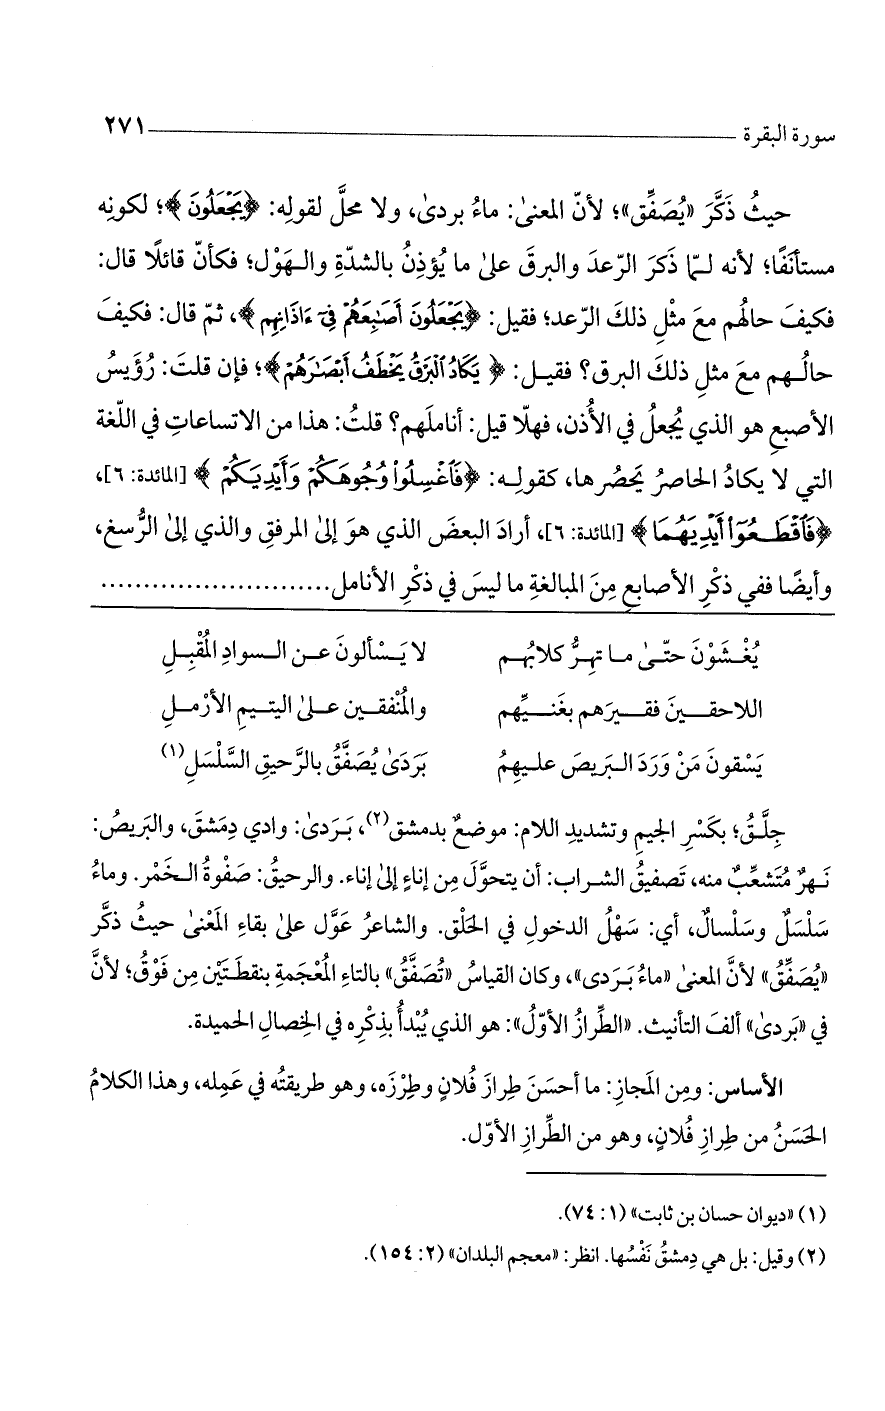 سورة البقرة ٢٧١
حيثُ ذَكَّرَ «يُصَفِّق»؛ لأنّ المعنىٰ: ماءُ بردىٰ، ولا محلَّ لقولِه: ﴿يَجْعَلُونَ﴾؛ لكونِه
مستأنَفًا؛ لأنه لـمّا ذَكرَ الرّعدَ والبرقَ علىٰ ما يُؤذِنُ بالشدّةِ والـهَوْل؛ فكأنّ قائلًا قال:
فكيفَ حالهُم معَ مثْلِ ذلكَ الرّعد؛ فقيل: ﴿يَجْعَلُونَ أَصَٰبِعَهُمْ فِىٓ ءَاذَانِهِم﴾، ثمّ قال: فكيفَ
حالُـهم معَ مثلِ ذلكَ البرق؟ فقيـل: ﴿يَكَادُ ٱلْبَرْقُ يَخْطَفُ أَبْصَٰرَهُمْ﴾؛ فإن قلتَ: رُؤَيسُ
الأصبعِ هو الذي يُجعلُ في الأُذن، فهلّا قيل: أناملَهم؟ قلتُ: هذا من الاتساعاتِ في اللّغة
التي لا يكادُ الحاصرُ يَحصُرها، كقولِـه: ﴿فَٱغْسِلُوا۟ وُجُوهَكُمْ وَأَيْدِيَكُمْ﴾ [المائدة: ٦]،
﴿فَٱقْطَعُوٓا۟ أَيْدِيَهُمَا﴾ [المائدة: ٦]، أرادَ البعضَ الذي هوَ إلىٰ المرفقِ والذي إلىٰ الرُّسغ،
وأيضًا ففي ذكْرِ الأصابعِ مِنَ المبالغةِ ما ليسَ في ذكْرِ الأنامل...........................
يُغْـشَوْنَ حتّـىٰ مـا تهِـرُّ كلابُهـم لا يَـسْألونَ عـن الـسوادِ المُقْبِـلِ
اللاحقـيـنَ فقـيـرَهم بغَنـيِّهم والمُنْفقـين عـلىٰ اليتـيمِ الأرْمـلِ
يَسْقونَ مَنْ وَرَدَ الـبَريصَ علـيهِمُ بَرَدَىٰ يُصَفَّقُ بالرَّحيقِ السَّلْسَلِ(١)
جِلَّـقُ؛ بكَسْرِ الجيمِ وتشديدِ اللام: موضعٌ بدمشق(٢)، بَـرَدىٰ: وادي دِمَشقَ، والبَريصُ:
نَـهرٌ مُتَشعِّبٌ منه، تَصفيقُ الشـراب: أن يتحوَّلَ مِن إناءٍ إلىٰ إناء. والرحيقُ: صَفْوةُ الـخَمْر. وماءٌ
سَلْسَلٌ وسَلْسالٌ، أي: سَهْلُ الدخولِ في الحَلْق. والشاعرُ عَوَّل علىٰ بقاءِ المَعْنىٰ حيثُ ذكَّر
«يُصَفِّقُ» لأنَّ المعنىٰ «ماءُ بَـرَدى»، وكان القياسُ «تُصَفَّقُ» بالتاءِ المُعْجَمةِ بنقطَتَيْن مِن فَوْقُ؛ لأنَّ
في «بَردىٰ» ألفَ التأنيث. «الطِّرازُ الأوّلُ»: هو الذي يُبْدأُ بذِكْرِه في الخِصالِ الحميدة.
الأساس: ومِن المَجازِ: ما أحسَنَ طِرازَ فُلان وطِرْزَه، وهو طريقتُه في عَمِله، وهذا الكلامُ
الحَسَنُ من طِرازِ فُلانٍ، وهو من الطِّرازِ الأوّل.
(١) «ديوان حسان بن ثابت» (١: ٧٤).
(٢) وقيل: بل هي دِمشقُ نَفْسُها. انظر: «معجم البلدان» (٢: ١٥٤).